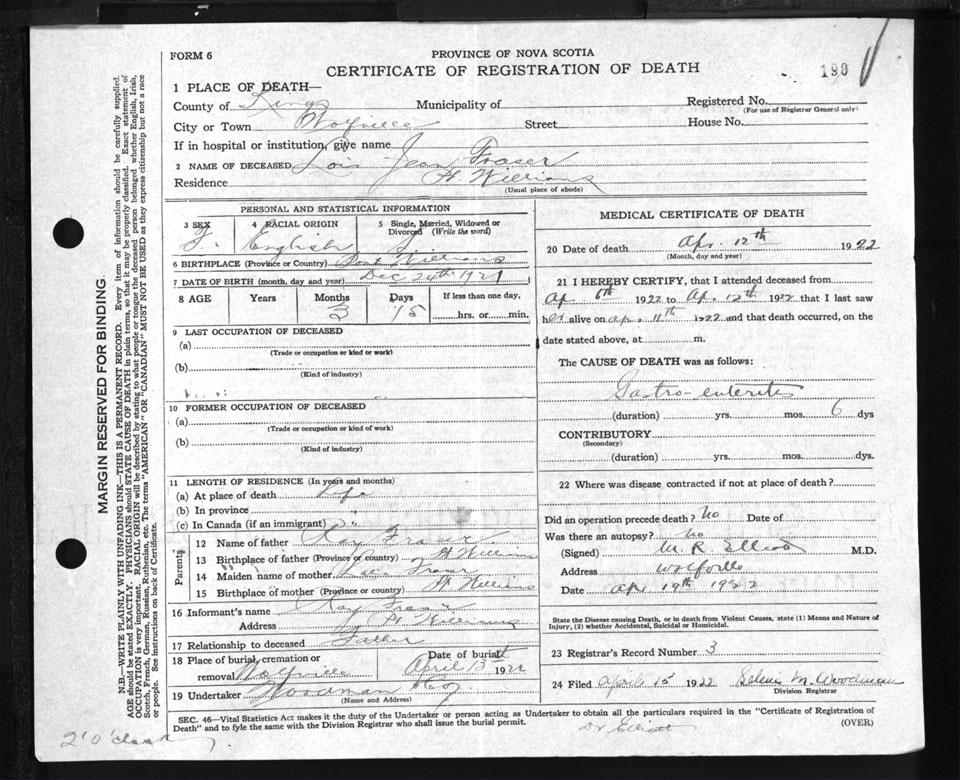 FORM 6
PROVINCE OF NOVA SCOTIA
CERTIFICATE OF REGISTRATION OF DEATH
190
1 PLACE OF DEATH—
County of Kings Municipality of Registered No.
(For use of Registrar General only)
City or Town Wolfville Street House No.
If in hospital or institution, give name
2 NAME OF DECEASED Lois Jean Fraser
Residence Pt. Williams
(Usual place of abode)
PERSONAL AND STATISTICAL INFORMATION
3 SEX 4 RACIAL ORIGIN 5 Single, Married, Widowed or Divorced (Write the word)
F. English S
6 BIRTHPLACE (Province or Country) Port Williams
7 DATE OF BIRTH (month, day and year) Dec 24th 1921
8 AGE Years Months Days If less than one day,
3 18 hrs. or min.
9 LAST OCCUPATION OF DECEASED
(a)
(Trade or occupation or kind or work)
(b)
(Kind of industry)
10 FORMER OCCUPATION OF DECEASED
(a)
(Trade or occupation or kind of work)
(b)
(Kind of industry)
11 LENGTH OF RESIDENCE (In years and months)
(a) At place of death Life
(b) In province "
(c) In Canada (if an immigrant) "
Parents
12 Name of father Ray Fraser
13 Birthplace of father (Province or country) Pt Williams
14 Maiden name of mother Fraser
15 Birthplace of mother (Province or country) Pt Williams
16 Informant's name Ray Fraser
Address Pt Williams
17 Relationship to deceased Father
18 Place of burial, cremation or removal Wolfville Date of burial April 13th 1922
19 Undertaker Woodman & Co,
(Name and Address)
MEDICAL CERTIFICATE OF DEATH
20 Date of death Apr. 12th 1922
(Month, day and year)
21 I HEREBY CERTIFY, that I attended deceased from
Ap. 6th 1922 to Ap. 12th 1922 that I last saw
her alive on Ap. 11th 1922 and that death occurred, on the
date stated above, at m.
The CAUSE OF DEATH was as follows:
Gastro-enteritis
(duration) yrs. mos. 6 dys
CONTRIBUTORY
(Secondary)
(duration) yrs. mos. dys.
22 Where was disease contracted if not at place of death?
Did an operation precede death? No Date of
Was there an autopsy? No
(Signed) M. R. Elliott M.D.
Address Wolfville
Date Ap 19th 1922
State the Disease causing Death, or in death from Violent Causes, state (1) Means and Nature of
Injury, (2) whether Accidental, Suicidal or Homicidal.
23 Registrar's Record Number 3
24 Filed April 15 1922 M. Woodman
Division Registrar
SEC. 46—Vital Statistics Act makes it the duty of the Undertaker or person acting as Undertaker to obtain all the particulars required in the "Certificate of Registration of
Death" and to fyle the same with the Division Registrar who shall issue the burial permit.
(OVER)
Dr Elliott
2 'O'clock
MARGIN RESERVED FOR BINDING
N.B.—WRITE PLAINLY WITH UNFADING INK—THIS IS A PERMANENT RECORD. Every item of information should be carefully supplied.
AGE should be stated EXACTLY. PHYSICIANS should STATE CAUSE OF DEATH in plain terms, so that it may be properly classified. Exact statement of
OCCUPATION is very important. RACIAL ORIGIN will be described by stating to what people or tongue the deceased person belonged whether English, Irish,
Scotch, French, German, Russian, Ruthenian, etc. The terms "AMERICAN" OR "CANADIAN" MUST NOT BE USED as they express citizenship but not a race
or people. See instructions on back of Certificate.